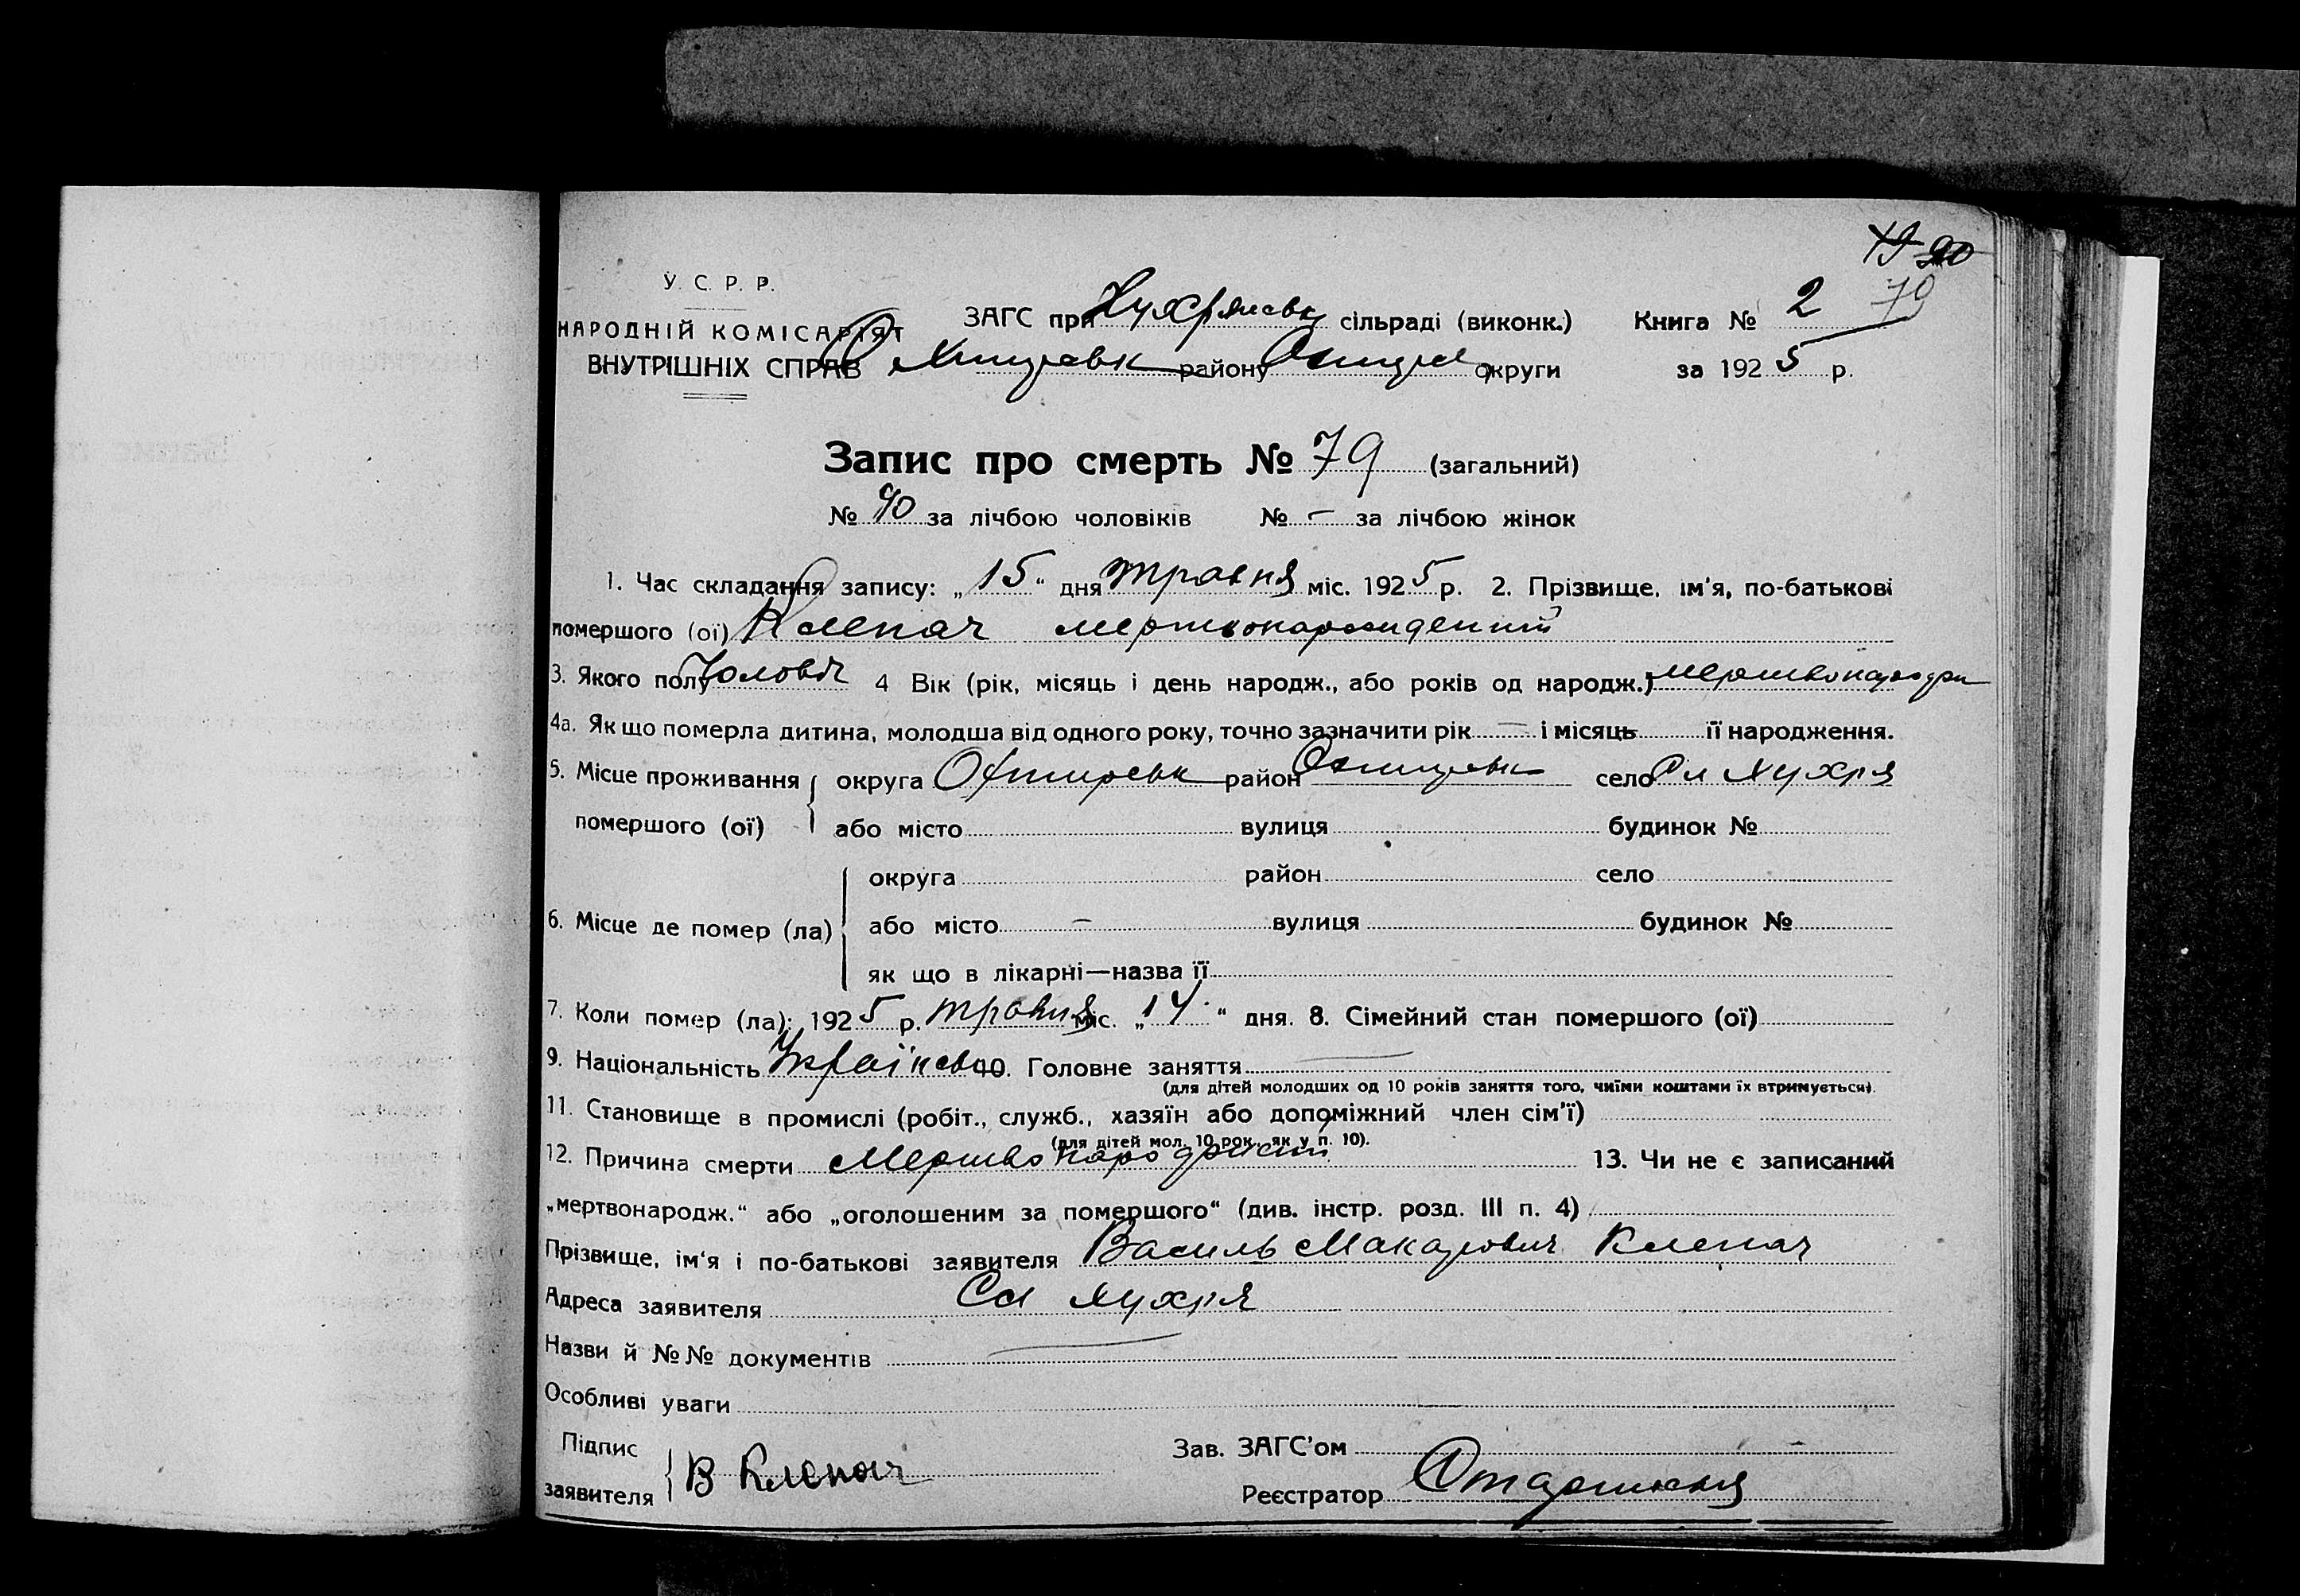 79 90
У. С. Р. Р.
79
НАРОДНІЙ КОМІСАРІЯТ ЗАГС при Хухрянськ сільраді (виконк.) Книга № 2
ВНУТРІШНІХ СПРАВ Охтирськ району Охтирс округи за 1925 р.
Запис про смерть № 79 (загальний)
№ 40 за лічбою чоловіків № — за лічбою жінок
1. Час складання запису: „15“ дня травня міс. 1925 р. 2. Прізвище, ім'я, по-батькові
помершого (ої) Клепач мертвонарожденний
3. Якого полу Чоловіч 4 Вік (рік, місяць і день народж., або років од народж.)
4а. Як що померла дитина, молодша від одного року, точно зазначити рік — і місяць її народження.
5. Місце проживання округа Охтирськ район Охтирськ село Сл Хухря
помершого (ої) або місто вулиця будинок №
округа район село
6. Місце де помер (ла) або місто — вулиця будинок №
як що в лікарні—назва її
7. Коли помер (ла): 1925 р. травня міс. „14“ дня. 8. Сімейний стан помершого (ої)
9. Національність Українськ 10. Головне заняття —
(для дітей молодших од 10 років заняття того, чиїми коштами їх втримується).
11. Становище в промислі (робіт., служб., хазяїн або допоміжний член сім'ї)
(для дітей мол. 10 рок., як у п. 10).
12. Причина смерти 13. Чи не є записаний
„мертвонародж.“ або „оголошеним за помершого“ (див. інстр. розд. III п. 4)
Прізвище, ім'я і по-батькові заявителя Василь Макарович Клепач
Адреса заявителя Сл Хухря
Назви й №№ документів —
Особливі уваги
Підпис Зав. ЗАГС'ом —
заявителя В Клепач Реєстратор